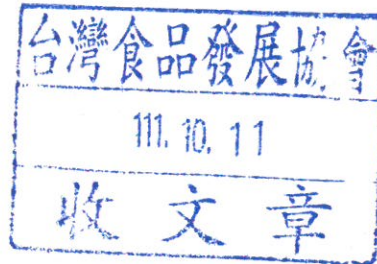 台灣食品發展協會
111. 10. 11
收文章